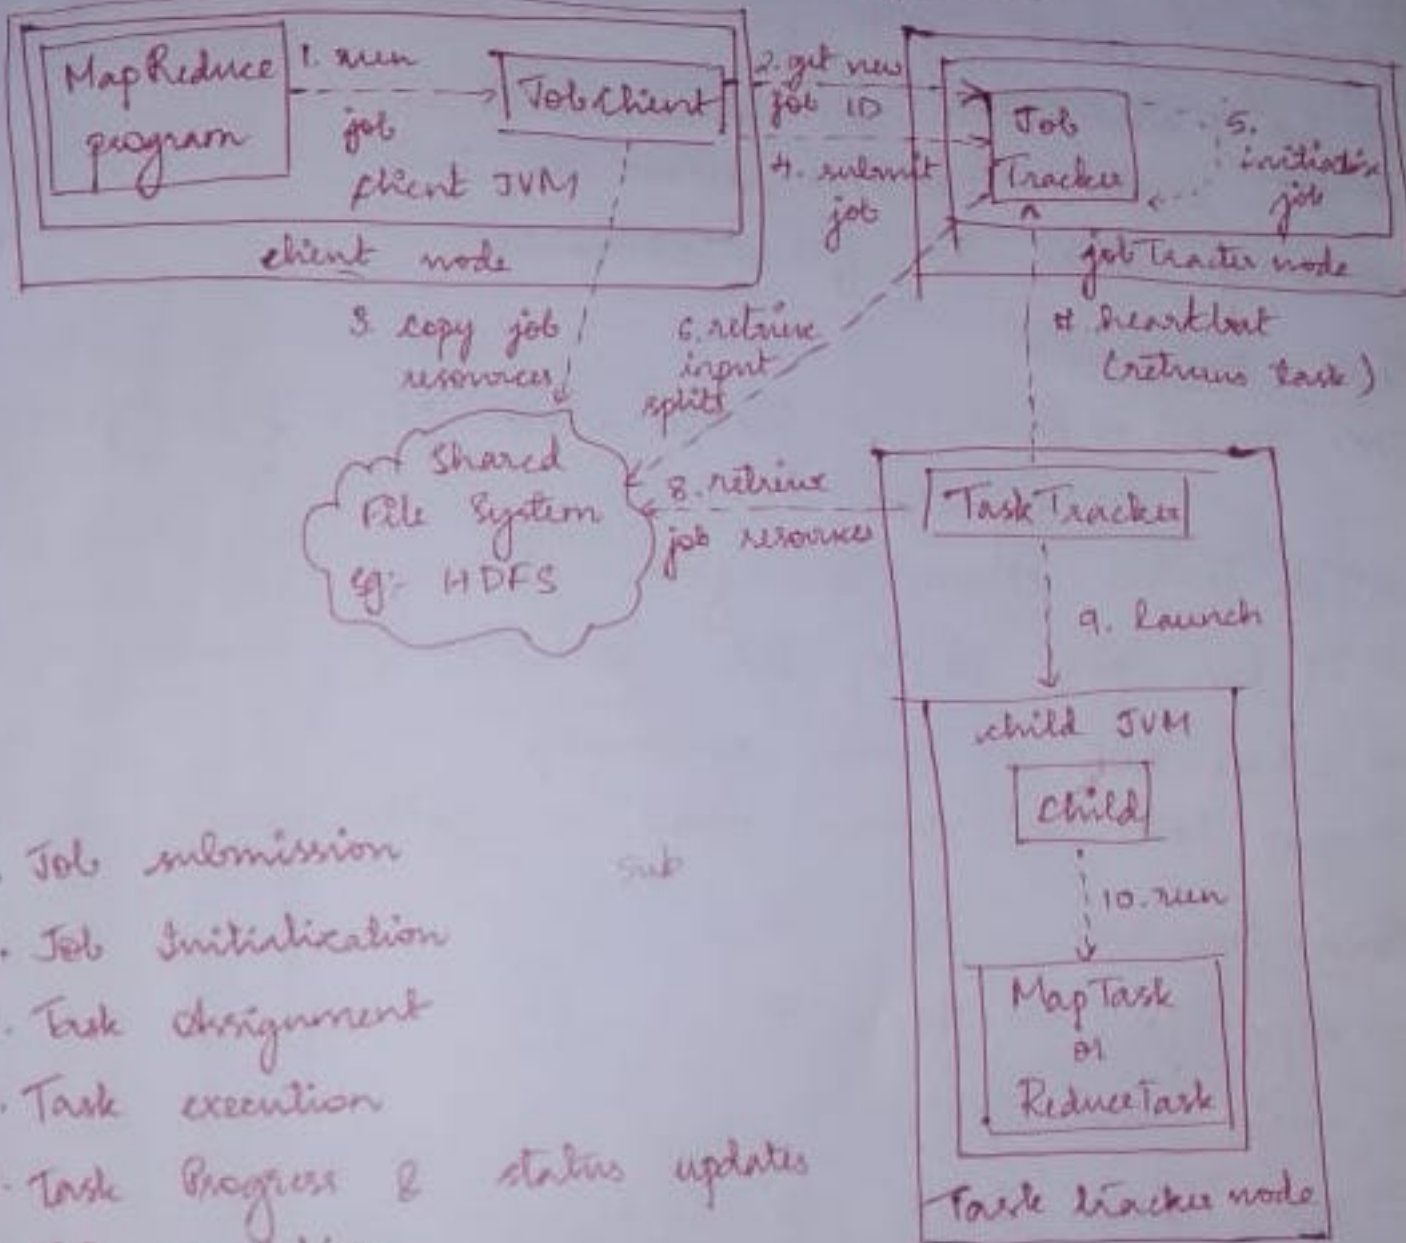 MapReduce
program
1. run
job
client JVM
JobClient
client node
2. get new
job ID
4. submit
job
Job
Tracker
5.
initialize
job
jobTracker node
3. copy job
resources
6. retrieve
input
splits
7. heartbeat
(returns task)
Shared
File System
eg:- HDFS
8. retrieve
job resources
TaskTracker
9. launch
child JVM
Child
10. run
MapTask
or
ReduceTask
Task tracker node
Job submission
sub
Job Initialization
Task Assignment
Task execution
Task Progress & status updates